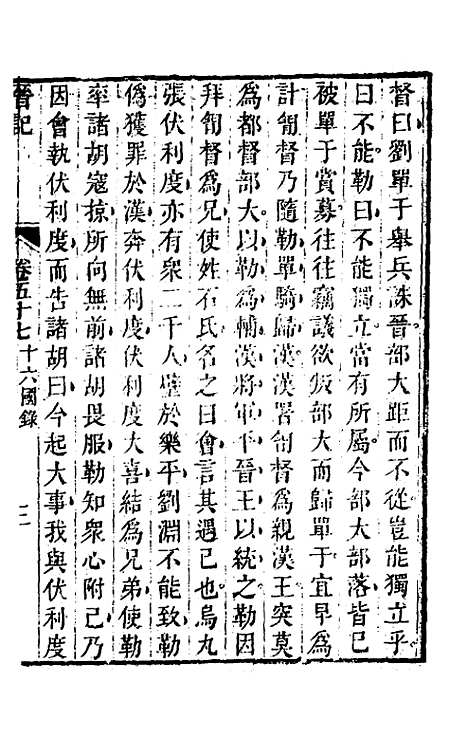 督曰劉單于舉兵誅晉部大距而不從豈能獨立乎
曰不能勒曰不能獨立當有所屬今部大部落皆已
被單于賞募往往竊議欲叛部大而歸單于宜早爲
計㔨督乃隨勒單騎歸漢漢署㔨督爲親漢王突莫
爲都督部大以勒爲輔漢將軍平晉王以統之勒因
拜㔨督爲兄使姓石氏名之曰會言其遇己也烏丸
張伏利度亦有衆二千人壁於樂平劉淵不能致勒
偽獲罪於漢奔伏利度伏利度大喜結爲兄弟使勒
率諸胡寇掠所向無前諸胡畏服勒知衆心附己乃
因會執伏利度而告諸胡曰今起大事我與伏利度
晉記
卷五十七
十六國錄
三